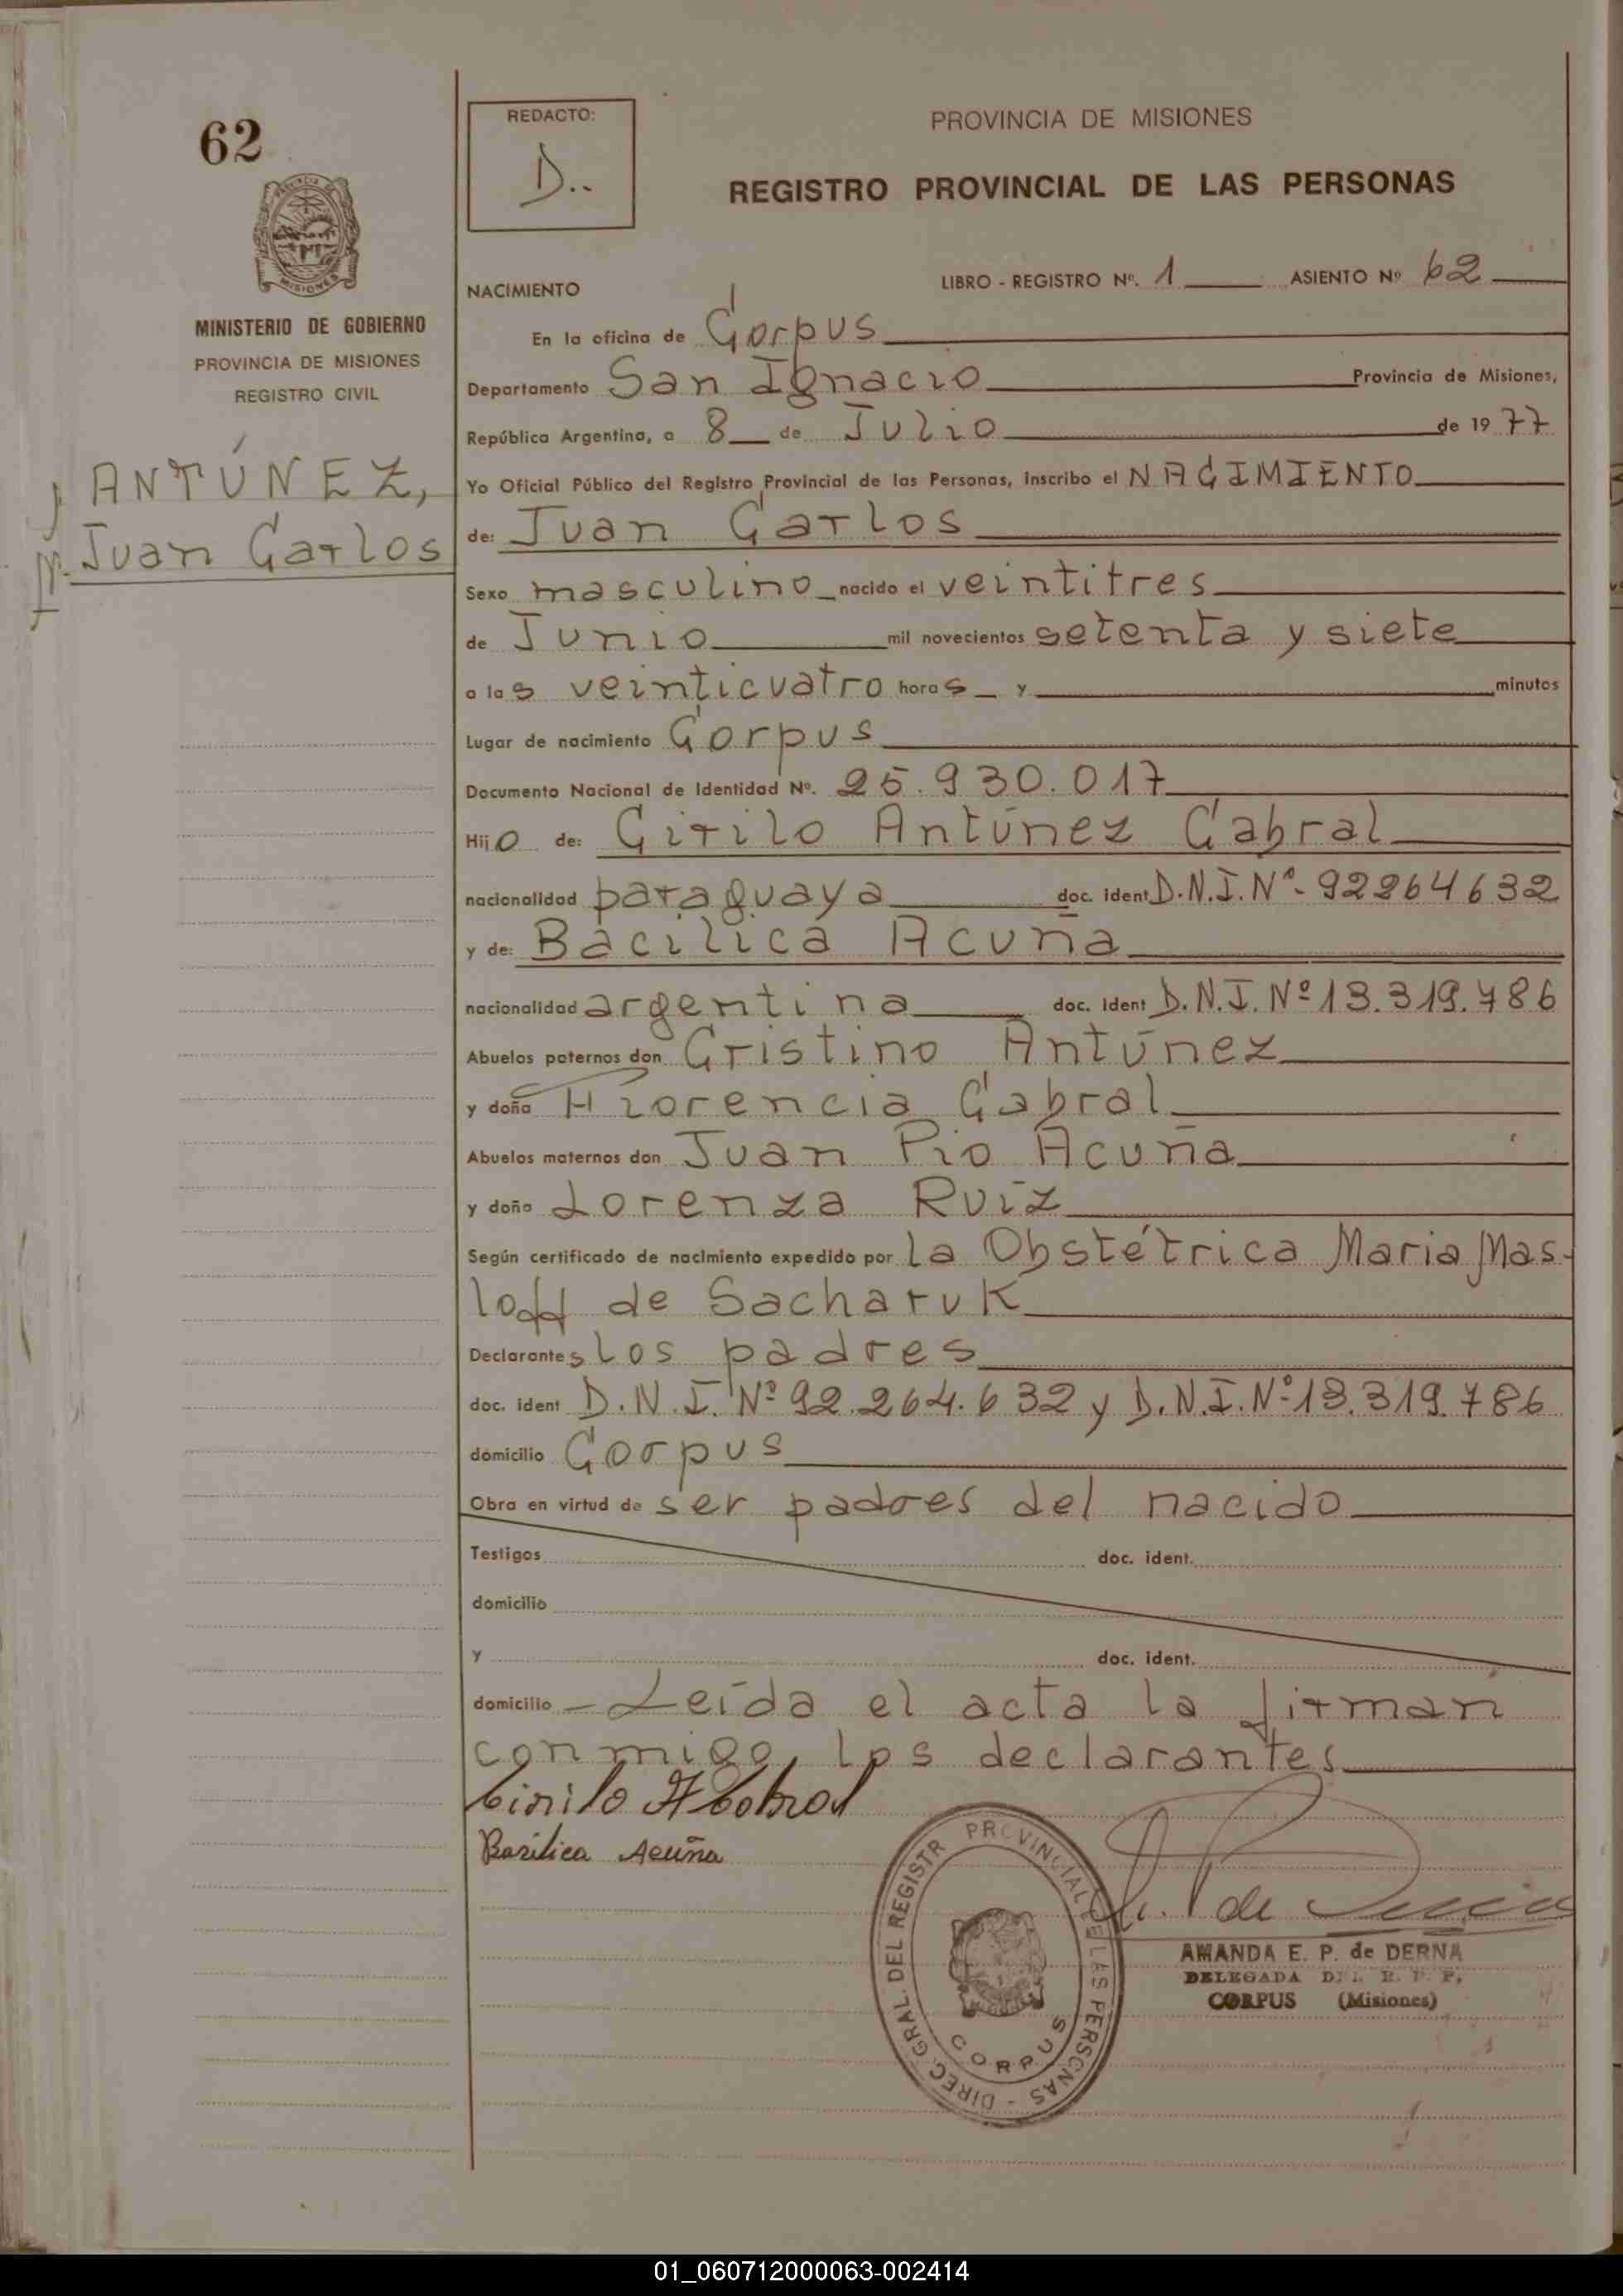 62
REDACTO:
D..
PROVINCIA DE MISIONES
REGISTRO PROVINCIAL DE LAS PERSONAS
MISIONES
MINISTERIO DE GOBIERNO
PROVINCIA DE MISIONES
REGISTRO CIVIL
ANTÚNEZ,
Juan Carlos
NACIMIENTO
LIBRO - REGISTRO Nº. 1 ASIENTO Nº 62
En la oficina de Corpus
Departamento San Ignacio Provincia de Misiones,
República Argentina, a 8 de Julio de 1977
Yo Oficial Público del Registro Provincial de las Personas, inscribo el NACIMIENTO
de: Juan Carlos
Sexo masculino nacido el veintitres
de Junio mil novecientos setenta y siete
a las veinticuatro horas y minutos
Lugar de nacimiento Corpus
Documento Nacional de Identidad Nº. 25.930.017
Hijo de: Cirilo Antúnez Cabral
nacionalidad paraguaya doc. ident D.N.I.Nº-92264632
y de: Bacilica Acuña
nacionalidad argentina doc. ident D.N.I.Nº13.319.786
Abuelos paternos don Cristino Antúnez
y doña Florencia Cabral
Abuelos maternos don Juan Pio Acuña
y doña Lorenza Ruíz
Según certificado de nacimiento expedido por la Obstétrica Maria Mas-
loff de Sacharuk
Declarantes los padres
doc. ident D.N.I.Nº92.264.632 y D.N.I.Nº13.319.786
domicilio Corpus
Obra en virtud de ser padres del nacido
Testigos doc. ident.
domicilio
y doc. ident.
domicilio - Leída el acta la firman
conmigo, los declarantes
Cirilo A Cabral
Basilica Acuña
DIREC. GRAL. DEL REGISTR PROVINCIAL DE LAS PERSONAS -
CORPUS
AMANDA E. P. de DERNA
DELEGADA DEL R. P. P.
CORPUS (Misiones)
01_060712000063-002414